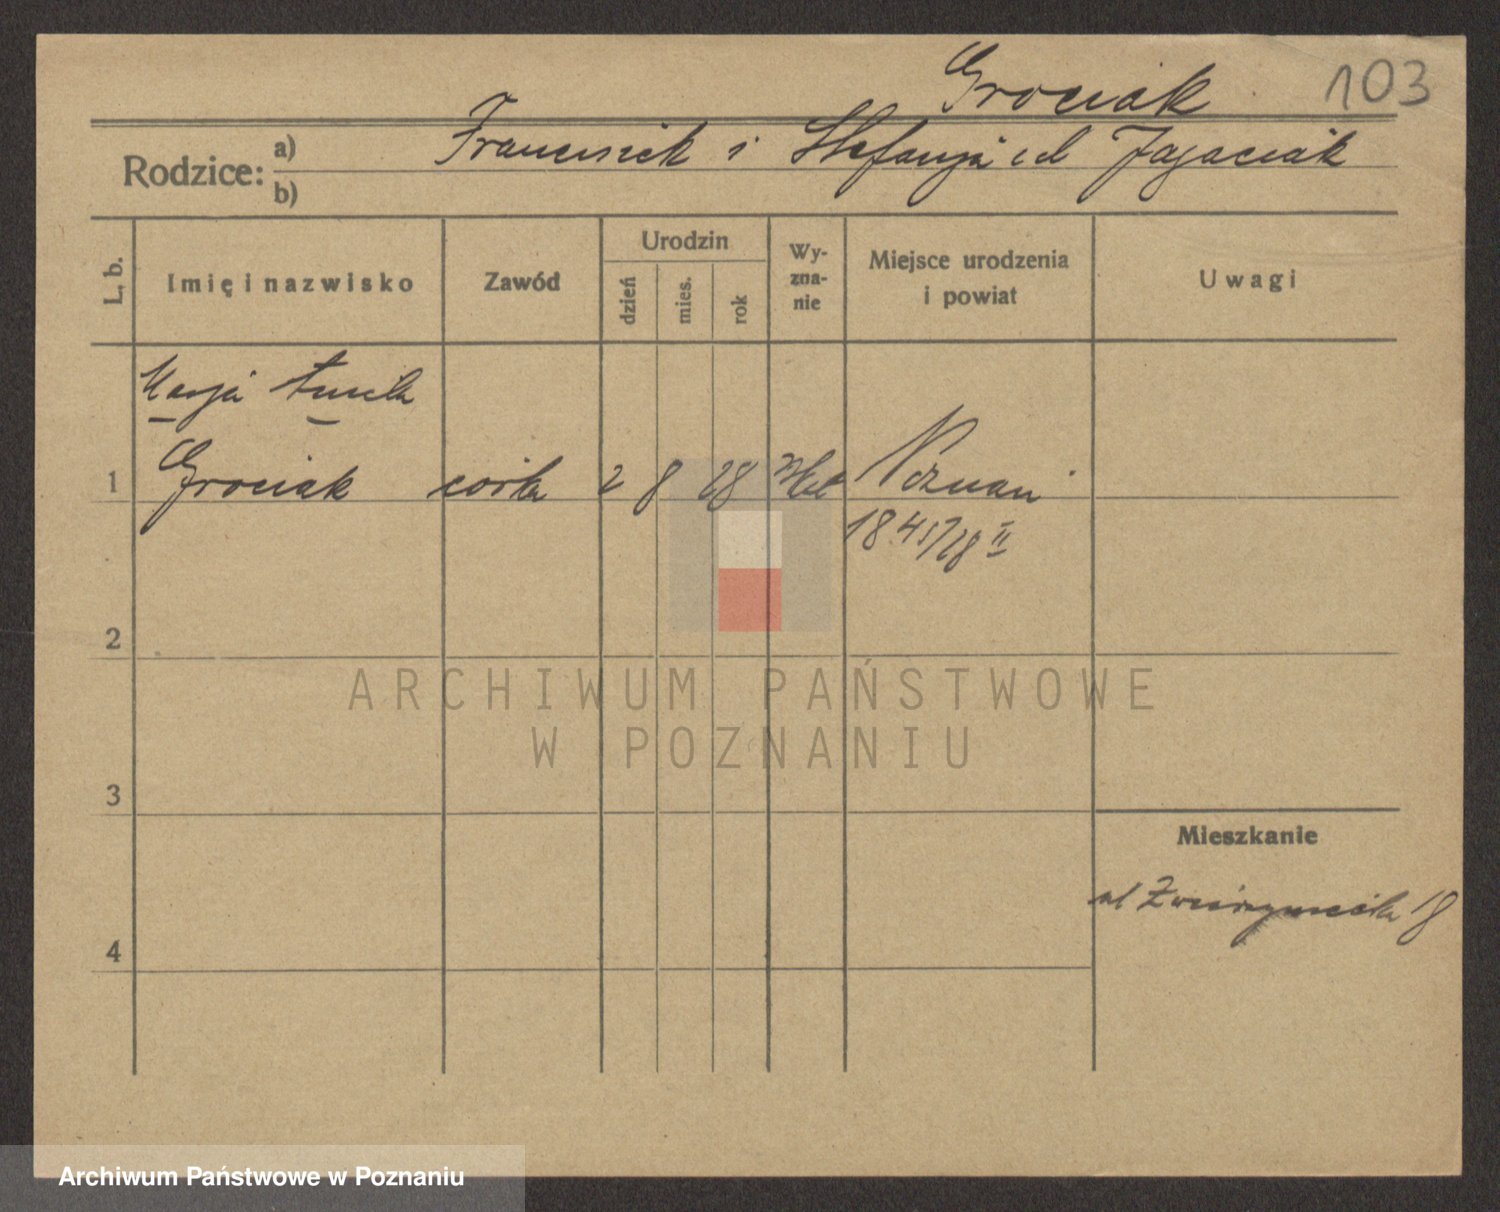 Grociak 103
Rodzice: a) Franciszek i Stefanja z d Jagaciak
b)
L. b.
Imię i nazwisko
Zawód
Urodzin
dzień
mies.
rok
Wy-
zna-
nie
Miejsce urodzenia
i powiat
Uwagi
Marja
1 Grociak córka 2 8 28 Poznań
1841/28 II
2
ARCHIWUM PAŃSTWOWE
W POZNANIU
3
Mieszkanie
ul Zwierzyniecka 18
4
Archiwum Państwowe w Poznaniu